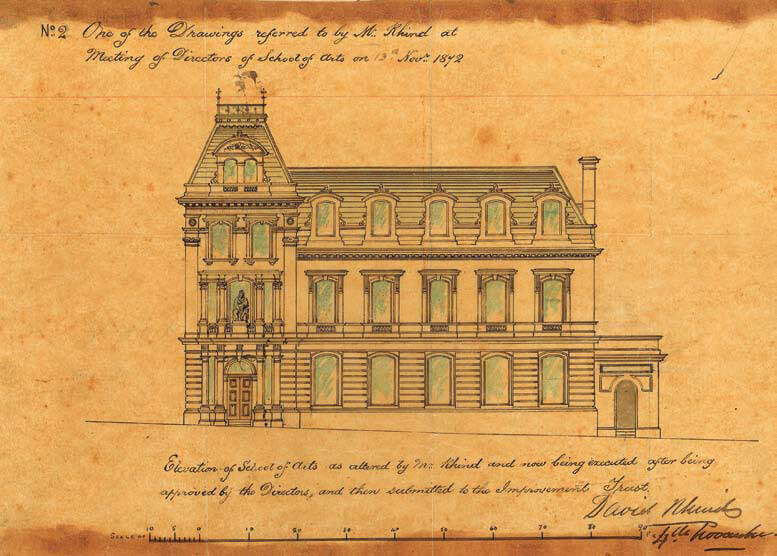 No. 2 One of the Drawings referred to by Mr. Rhind at
Meeting of Directors of School of Arts on 13th Novr. 1872
Elevation of School of Arts as altered by Mr. Rhind and now being executed after being
approved by the Directors, and then submitted to the Improvement Trust.
David Rhind
SCALE OF 10 5 0 10 20 30 40 50 60 70 80 90 F